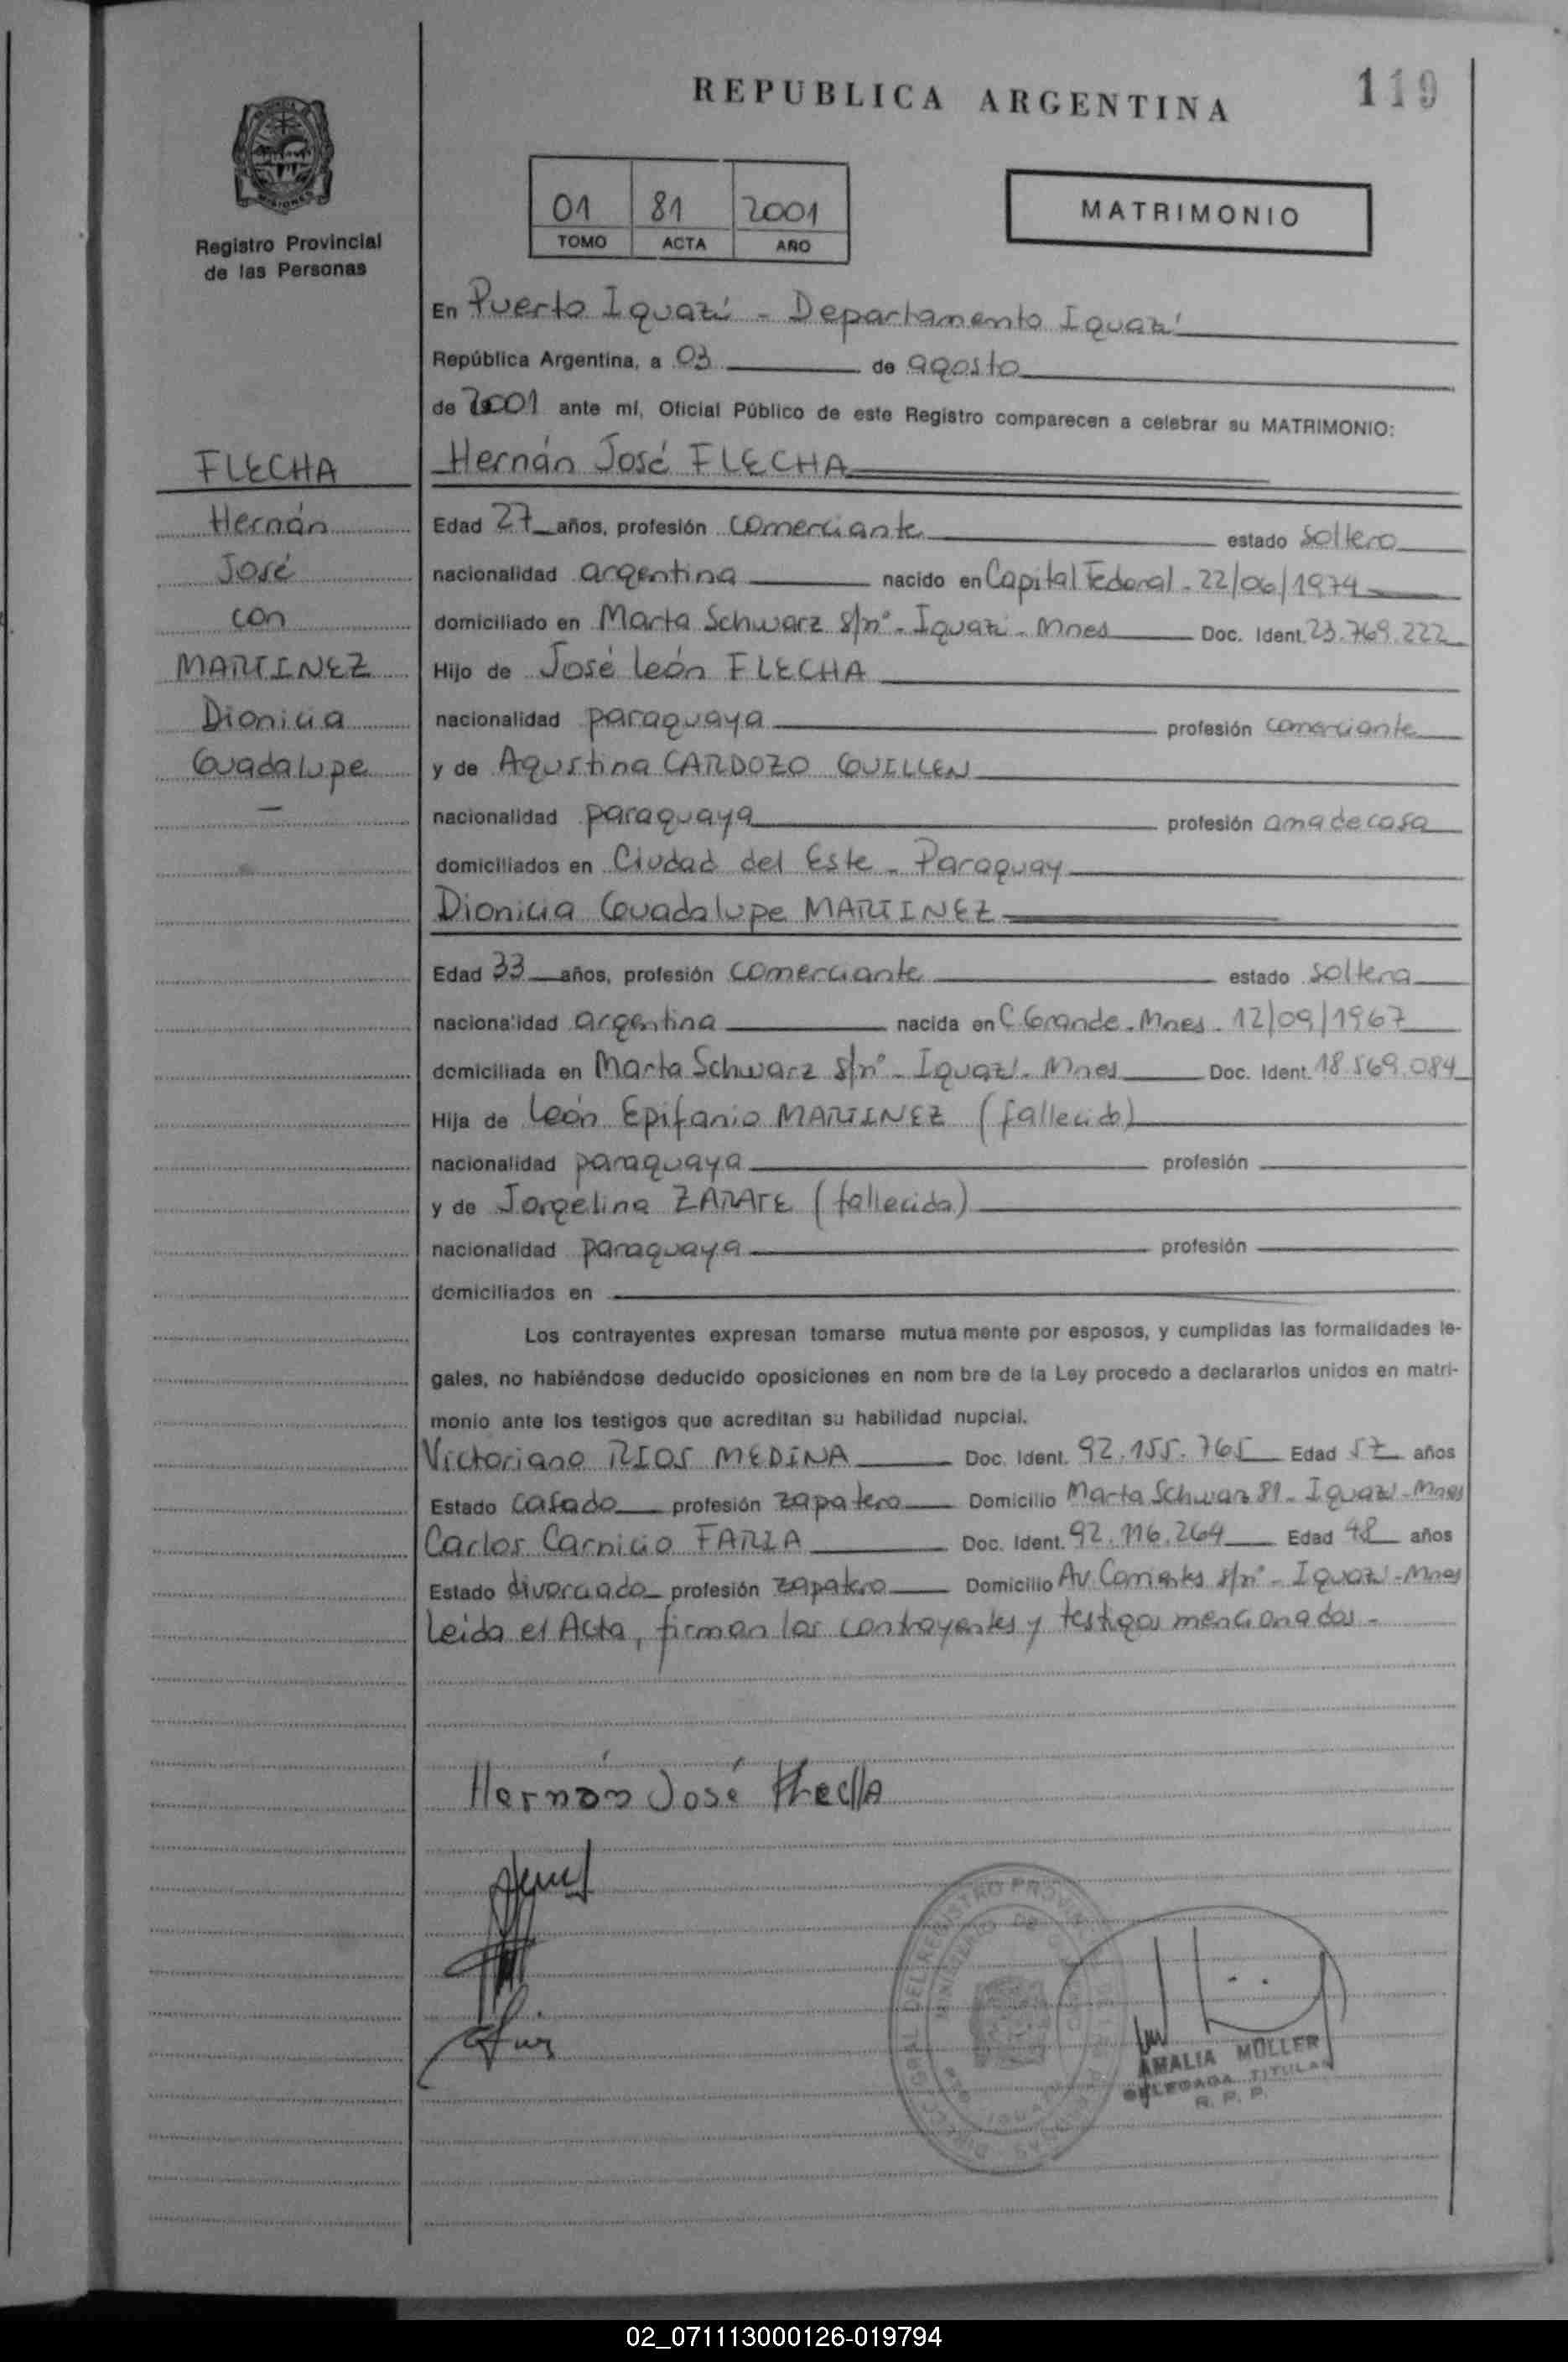 REPUBLICA ARGENTINA
119
MISIONES
Registro Provincial
de las Personas
01 81 2001
TOMO ACTA AÑO
MATRIMONIO
En Puerto Iguazú - Departamento Iguazú
República Argentina, a 03 de agosto
de 2001 ante mí, Oficial Público de este Registro comparecen a celebrar su MATRIMONIO:
FLECHA
Hernán
José
con
MARTINEZ
Dionicia
Guadalupe
Hernán José FLECHA
Edad 27 años, profesión comerciante estado soltero
nacionalidad argentina nacido en Capital Federal - 22/06/1974
domiciliado en Marta Schwarz s/nº - Iguazú - Mnes Doc. Ident. 23.769.222
Hijo de José León FLECHA
nacionalidad paraguaya profesión comerciante
y de Agustina CARDOZO GUILLEN
nacionalidad paraguaya profesión ama de casa
domiciliados en Ciudad del Este - Paraguay
Dionicia Guadalupe MARTINEZ
Edad 33 años, profesión comerciante estado soltera
nacionalidad argentina nacida en C. Grande - Mnes - 12/09/1967
domiciliada en Marta Schwarz s/nº - Iguazú - Mnes Doc. Ident. 18.569.084
Hija de León Epifanio MARTINEZ (fallecido)
nacionalidad paraguaya profesión
y de Jorgelina ZARATE (fallecida)
nacionalidad paraguaya profesión
domiciliados en
Los contrayentes expresan tomarse mutua mente por esposos, y cumplidas las formalidades le-
gales, no habiéndose deducido oposiciones en nom bre de la Ley procedo a declararlos unidos en matri-
monio ante los testigos que acreditan su habilidad nupcial.
Victoriano RIOS MEDINA Doc. Ident. 92.155.765 Edad 57 años
Estado casado profesión zapatero Domicilio Marta Schwarz 81 - Iguazú - Mnes
Carlos Carnicio FARIA Doc. Ident. 92.116.264 Edad 48 años
Estado divorciado profesión zapatero Domicilio Av. Corrientes s/nº - Iguazú - Mnes
Leída el Acta, firman los contrayentes y testigos mencionados -
Hernán José Flecha
AMALIA MÜLLER
DELEGADA TITULAR
R. P. P.
02_071113000126-019794